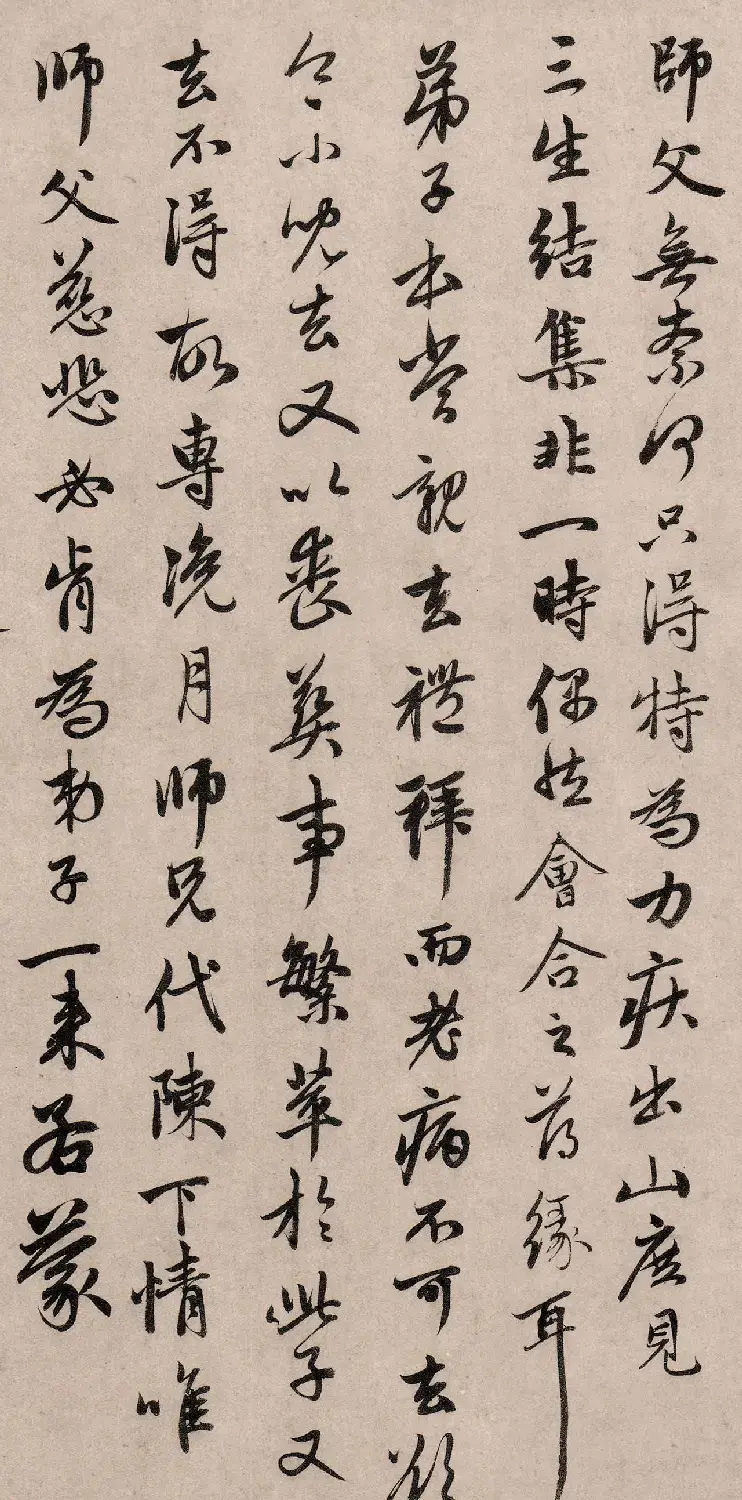 師父無柰何只得特為力疾出山庶見
三生結集非一時偶然會合之薄緣耳
弟子本當親去禮拜而老病不可去欲
令小兒去又以喪葬事繁萃於此子又
去不得故專浼月師兄代陳下情唯
师父慈悲必肯為弟子一來若蒙